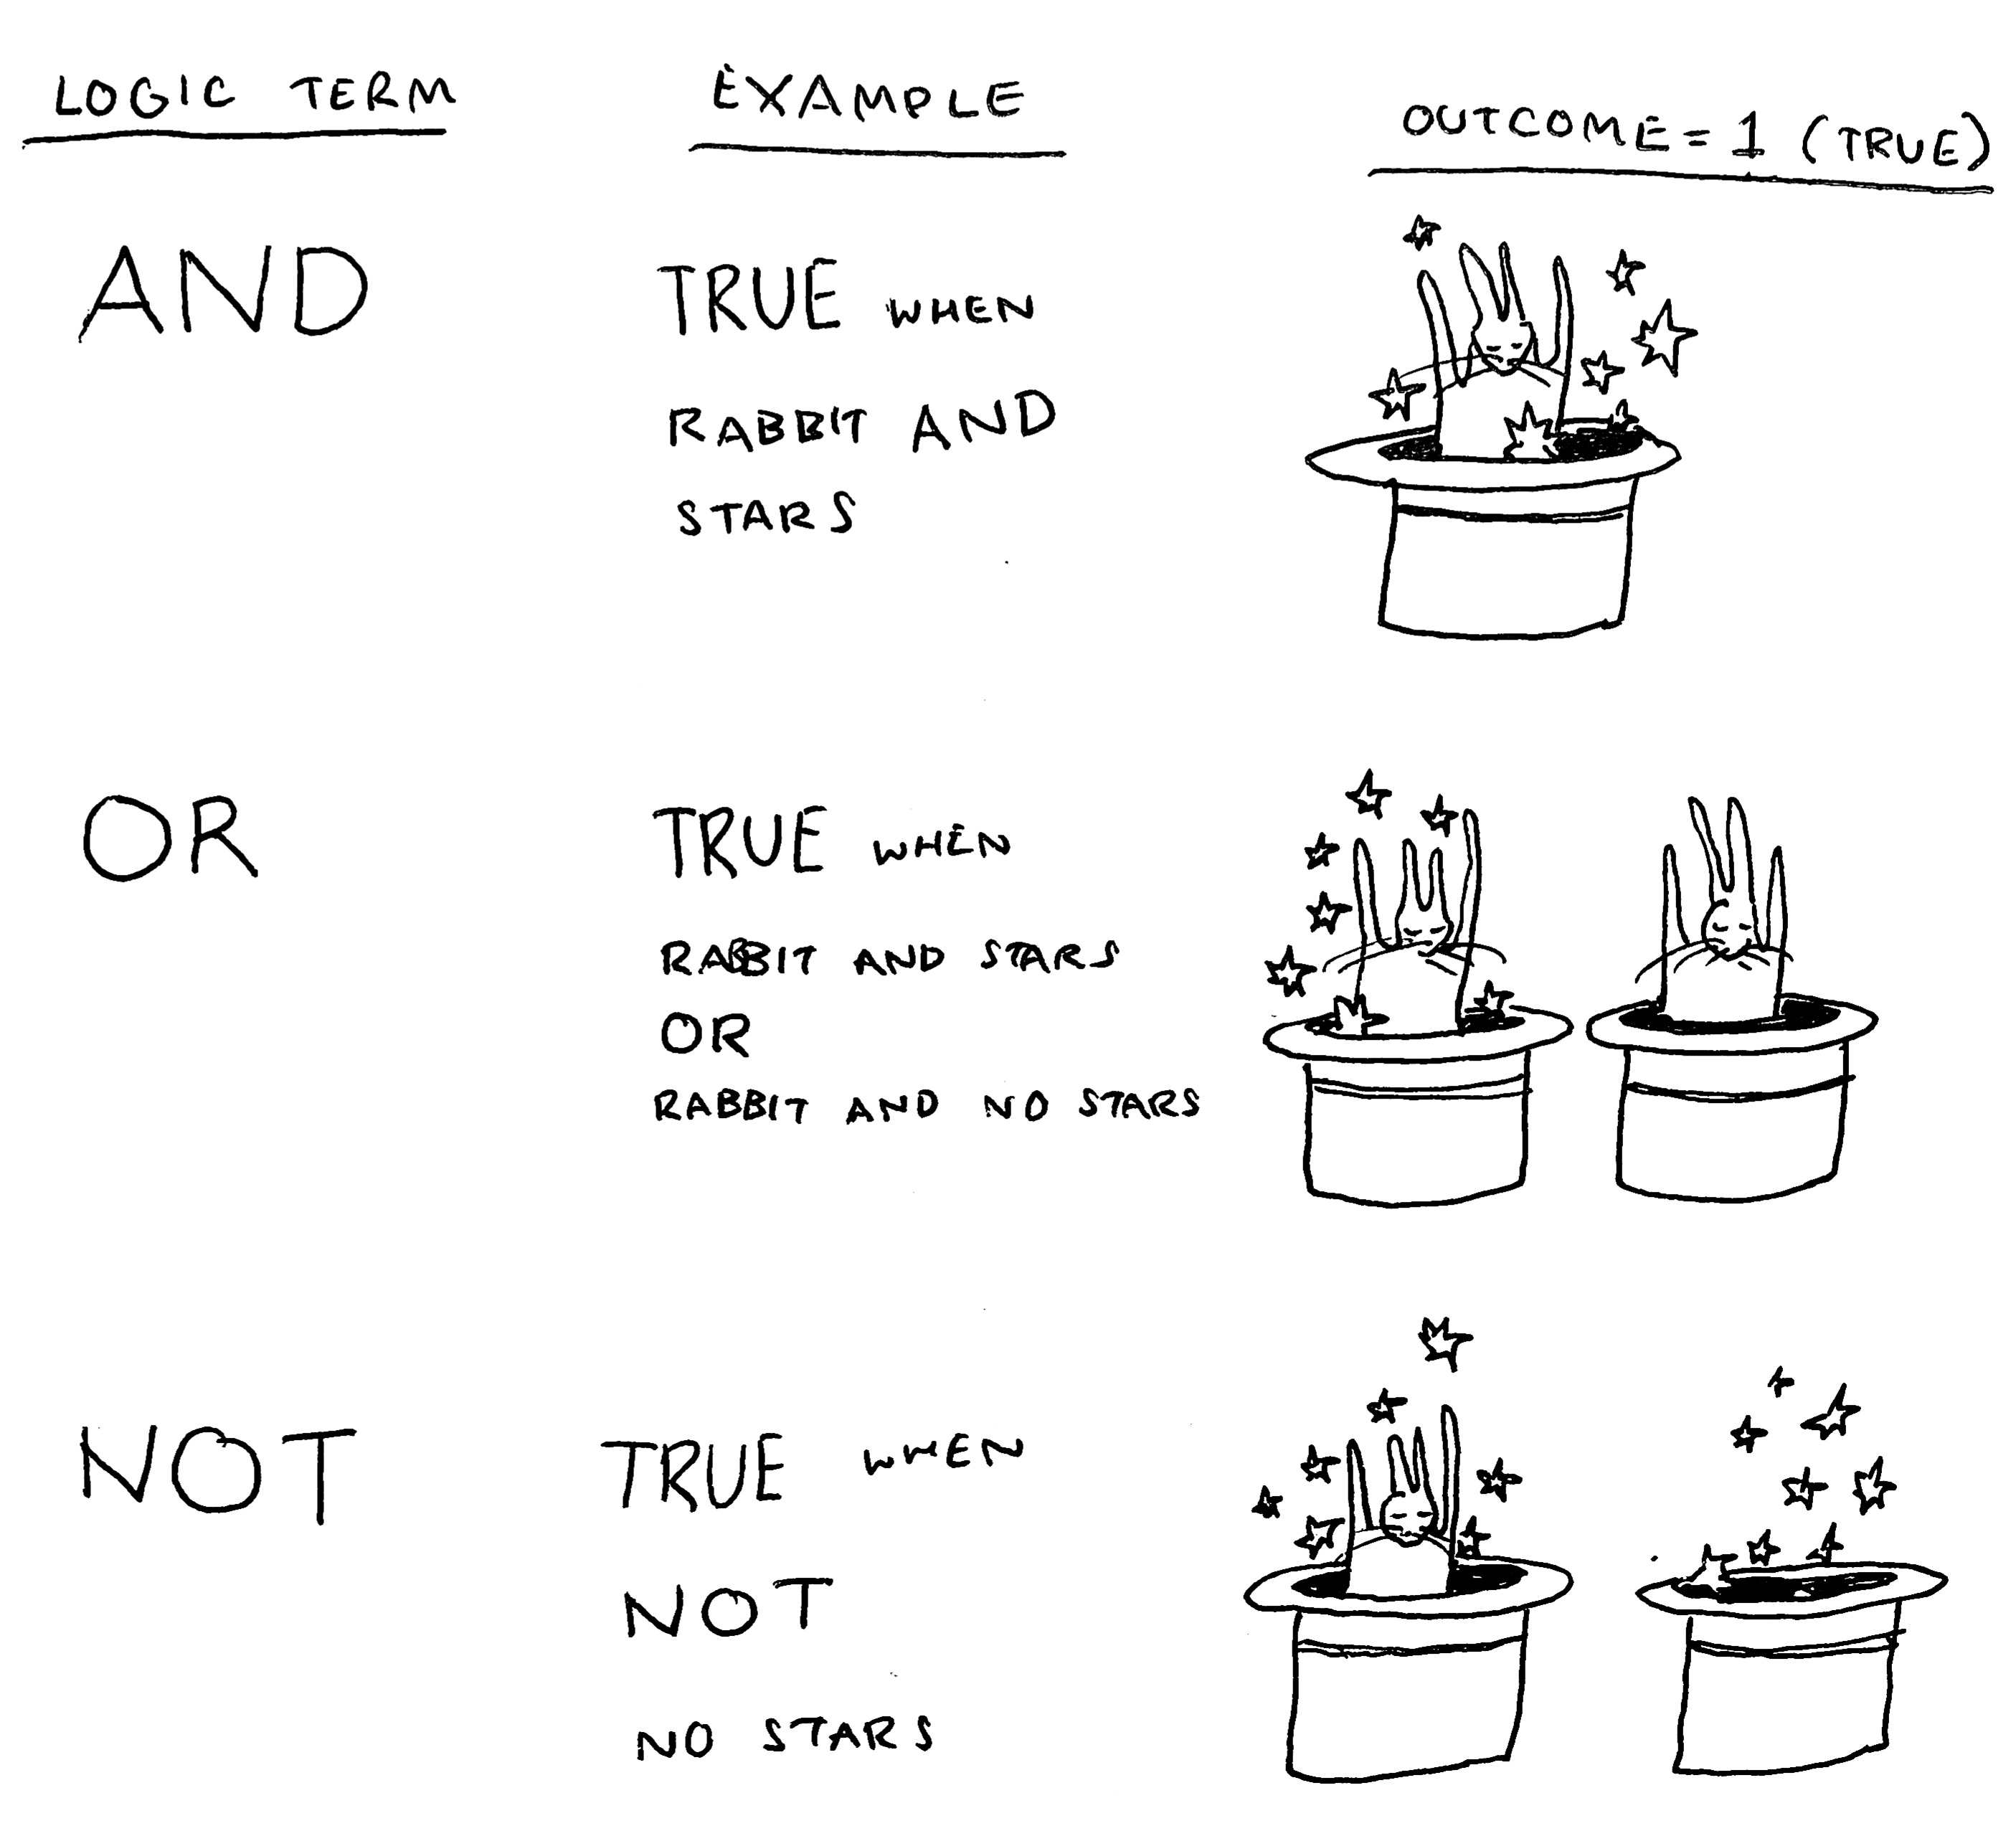 LOGIC TERM
EXAMPLE
OUTCOME = 1 (TRUE)
AND
TRUE WHEN
RABBIT AND
STARS
OR
TRUE WHEN
RABBIT AND STARS
OR
RABBIT AND NO STARS
NOT
TRUE WHEN
NOT
NO STARS